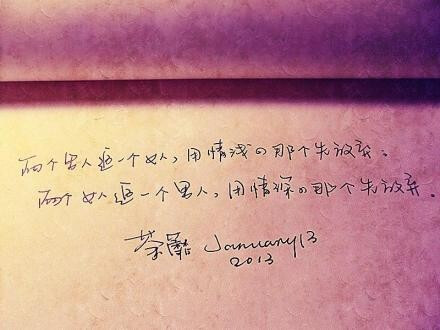 两个男人追一个女人,用情浅の那个先放弃。
两个女人追一个男人,用情深の那个先放弃.
荼蘼 January 13
2013